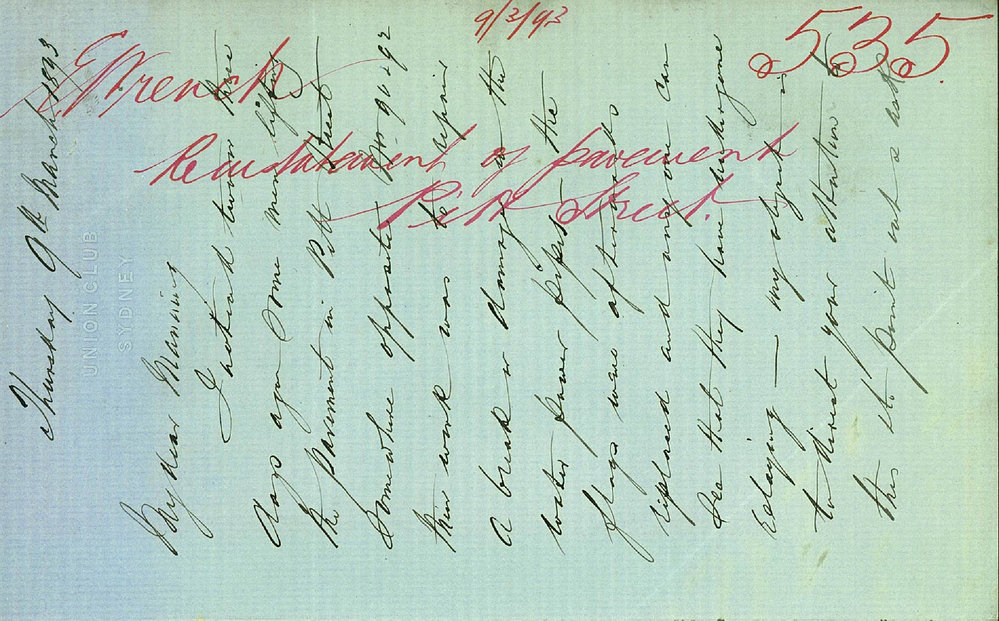 9/3/93
535
E W French
Reinstatement of pavement
Pitt Street.
UNION CLUB
SYDNEY
Thursday 9th March 1893
My dear Manning
I noticed two or three
days ago some men lifting
the pavement in Pitt Street
somewhere opposite Nos 90 & 92
their work was to repair
a break or damage in the
water power pipes the
flags were afterwards
replaced and anyone can
see that they have undergone
relaying — my object is
to direct your attention to
this to point out & ask